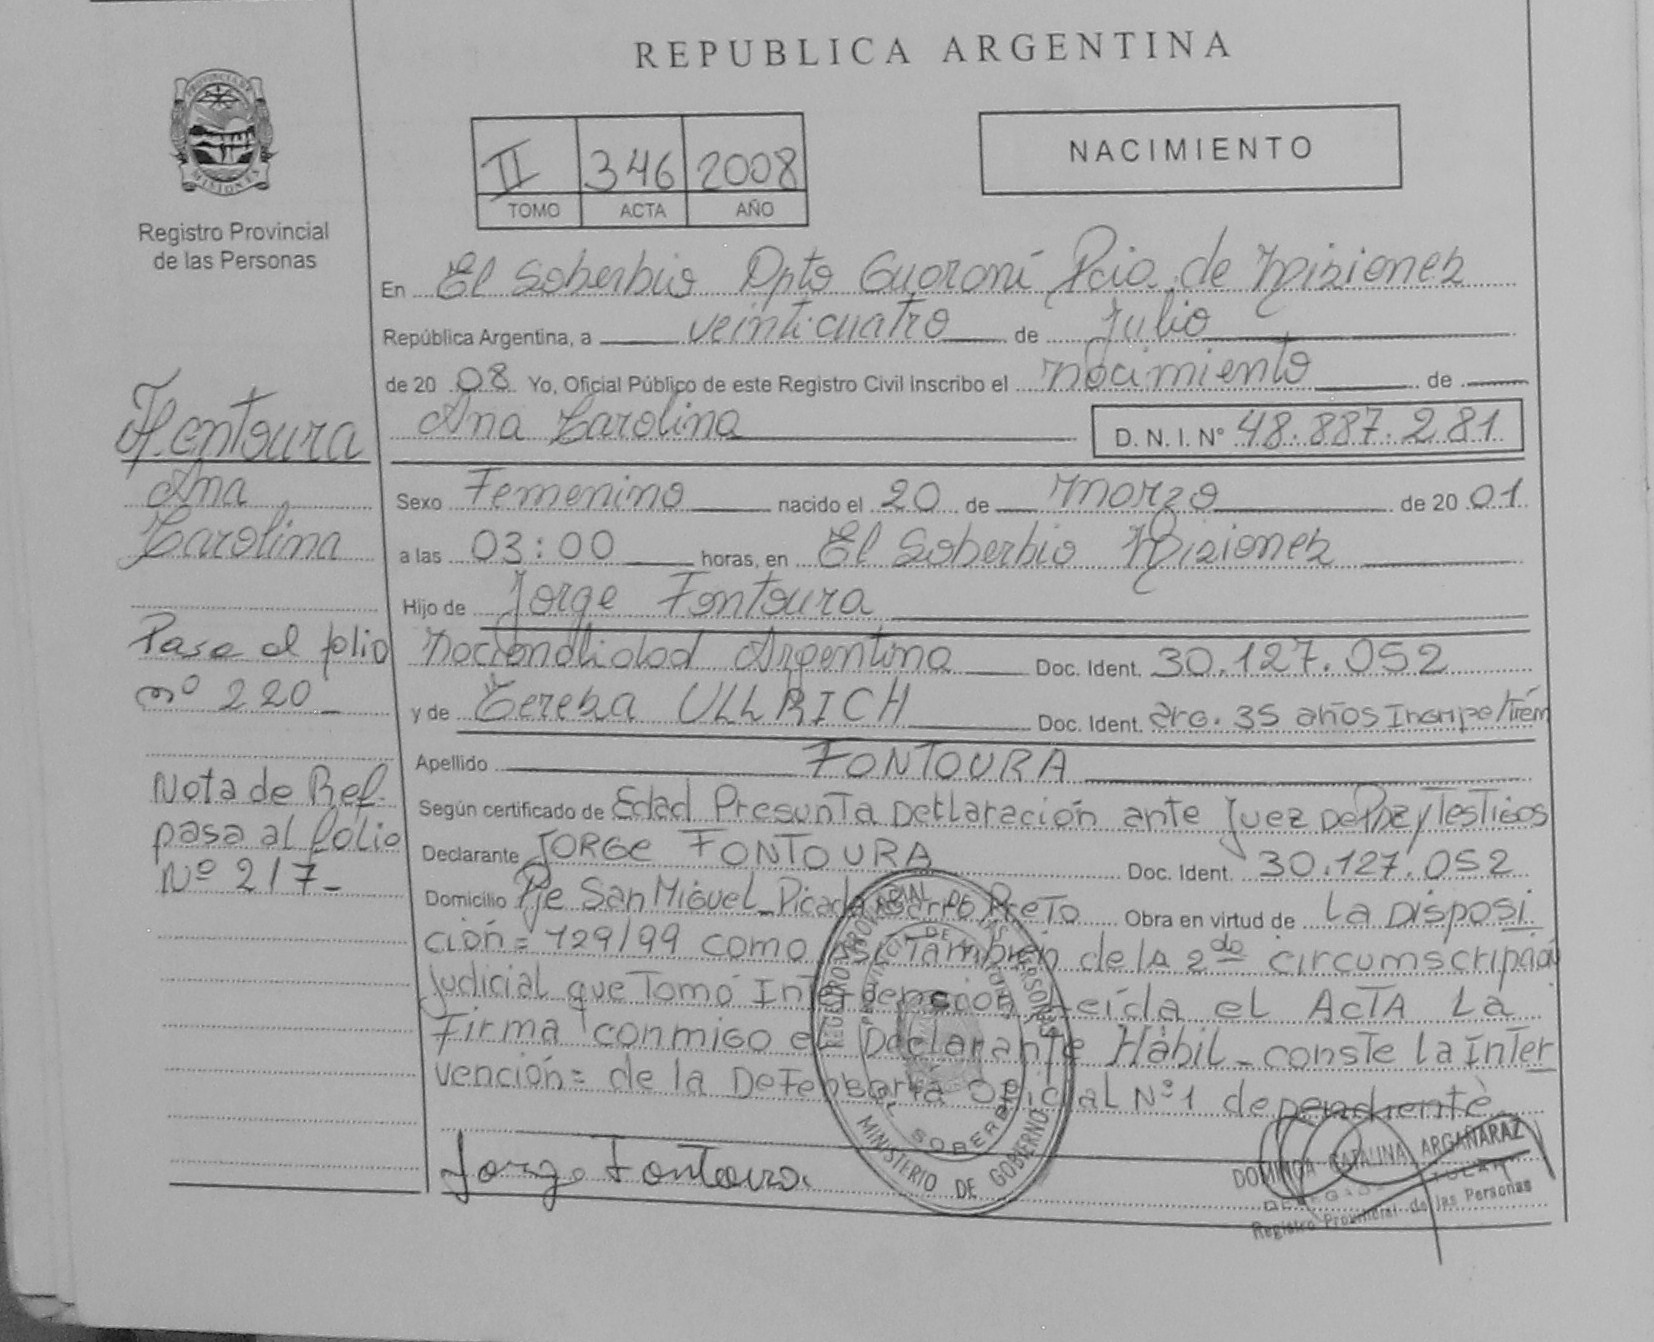 REPUBLICA ARGENTINA
PROVINCIA DE
MISIONES
Registro Provincial
de las Personas
II 346 2008
TOMO ACTA AÑO
NACIMIENTO
En El Soberbio Dpto Guaraní Pcia. de Misiones
República Argentina, a veinticuatro de Julio
de 20 08 Yo, Oficial Público de este Registro Civil Inscribo el nacimiento de
Ana Carolina D. N. I. N° 48.887.281
Sexo Femenino nacido el 20 de marzo de 20 01
a las 03:00 horas, en El Soberbio Misiones
Hijo de Jorge Fontoura
Nacionalidad Argentina Doc. Ident. 30.127.052
y de Tereza ULLRICH Doc. Ident. arg. 35 años
Apellido FONTOURA
Según certificado de Edad Presunta Declaración ante Juez De Paz y Testigos
Declarante JORGE FONTOURA Doc. Ident. 30.127.052
Domicilio Pje San Miguel - Picada Preto Obra en virtud de La Disposi
ción = 729/99 como así También de la 2da circumscripción
Judicial que Tomó Intervención Leída el ActA La
Firma conmigo el Declarante Hábil - conste la Inter
vención = de la Defensoría Oficial Nº 1 dependiente
Jorge Fontoura.
Fontoura
Ana
Carolina
Pasa al folio
nº 220 -
Nota de Ref.
pasa al folio
Nº 217 -
REGISTRO PROVINCIAL DE LAS PERSONAS
PROVINCIA DE MISIONES
EL SOBERBIO
MINISTERIO DE GOBIERNO
DOMINGA CATALINA ARGAÑARAZ
DELEGADA TITULAR
Registro Provincial de las Personas